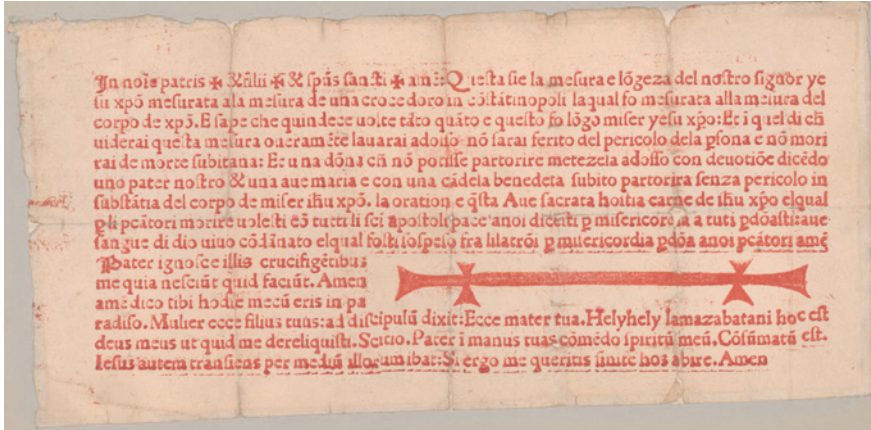 In noīe patris ✠ & filii ✠ & spūs sancti ✠ amē: Questa sie la mesura e lōgeza del nostro signor ye
su xpō mesurata ala mesura de una croce doro in cōstātinopoli la qual fo mesurata alla mesura del
corpo de xpō. E sape che quindece uolte tāto quāto e questo fo lōgo miser yesu xpō: Et ī quel di ch
uiderai questa mesura oueramēte lauarai adosso nō sarai ferito del pericolo dela psona e nō mori
rai de morte subitana: Et una dōna cħ nō potisse partorire metezela adosso con deuotiōe dicēdo
uno pater nostro & una aue maria e con una cādela benedeta subito partorira senza pericolo in
substātia del corpo de miser iħu xpō. la oration e q̄sta Aue sacrata hostia carne de iħu xpō elqual
p li pcātori morire uolesti eō tutti li sci apostoli pace anoi dicesti p misericordia a tuti pdōasti aue
sangue di dio uiuo cōdānato elqual fosti sospeso fra li latrōi p misericordia pdōa anoi pcātori amē
Pater ignosce illis crucifigētibus
me quia nesciūt quid faciūt. Amen
amē dico tibi hodie mecū eris in pa
radiso. Mulier ecce filius tuus: ad discipulū dixit: Ecce mater tua. Helyhely lamazabatani hoc est
deus meus ut quid me dereliquisti. Scitio. Pater ī manus tuas comēdo spiritū meū. Cōsūmatū est.
Iesus autem transiens per mediū illorum ibat: Si ergo me queritis sinite hos abire. Amen